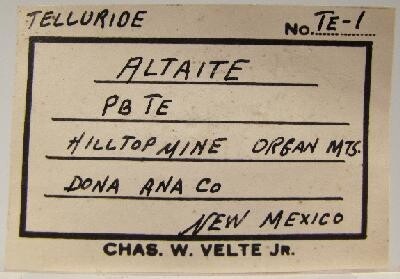 TELLURIDE No. TE-1
ALTAITE
PB TE
HILLTOP MINE ORGAN MTS.
DONA ANA CO
NEW MEXICO
CHAS. W. VELTE JR.